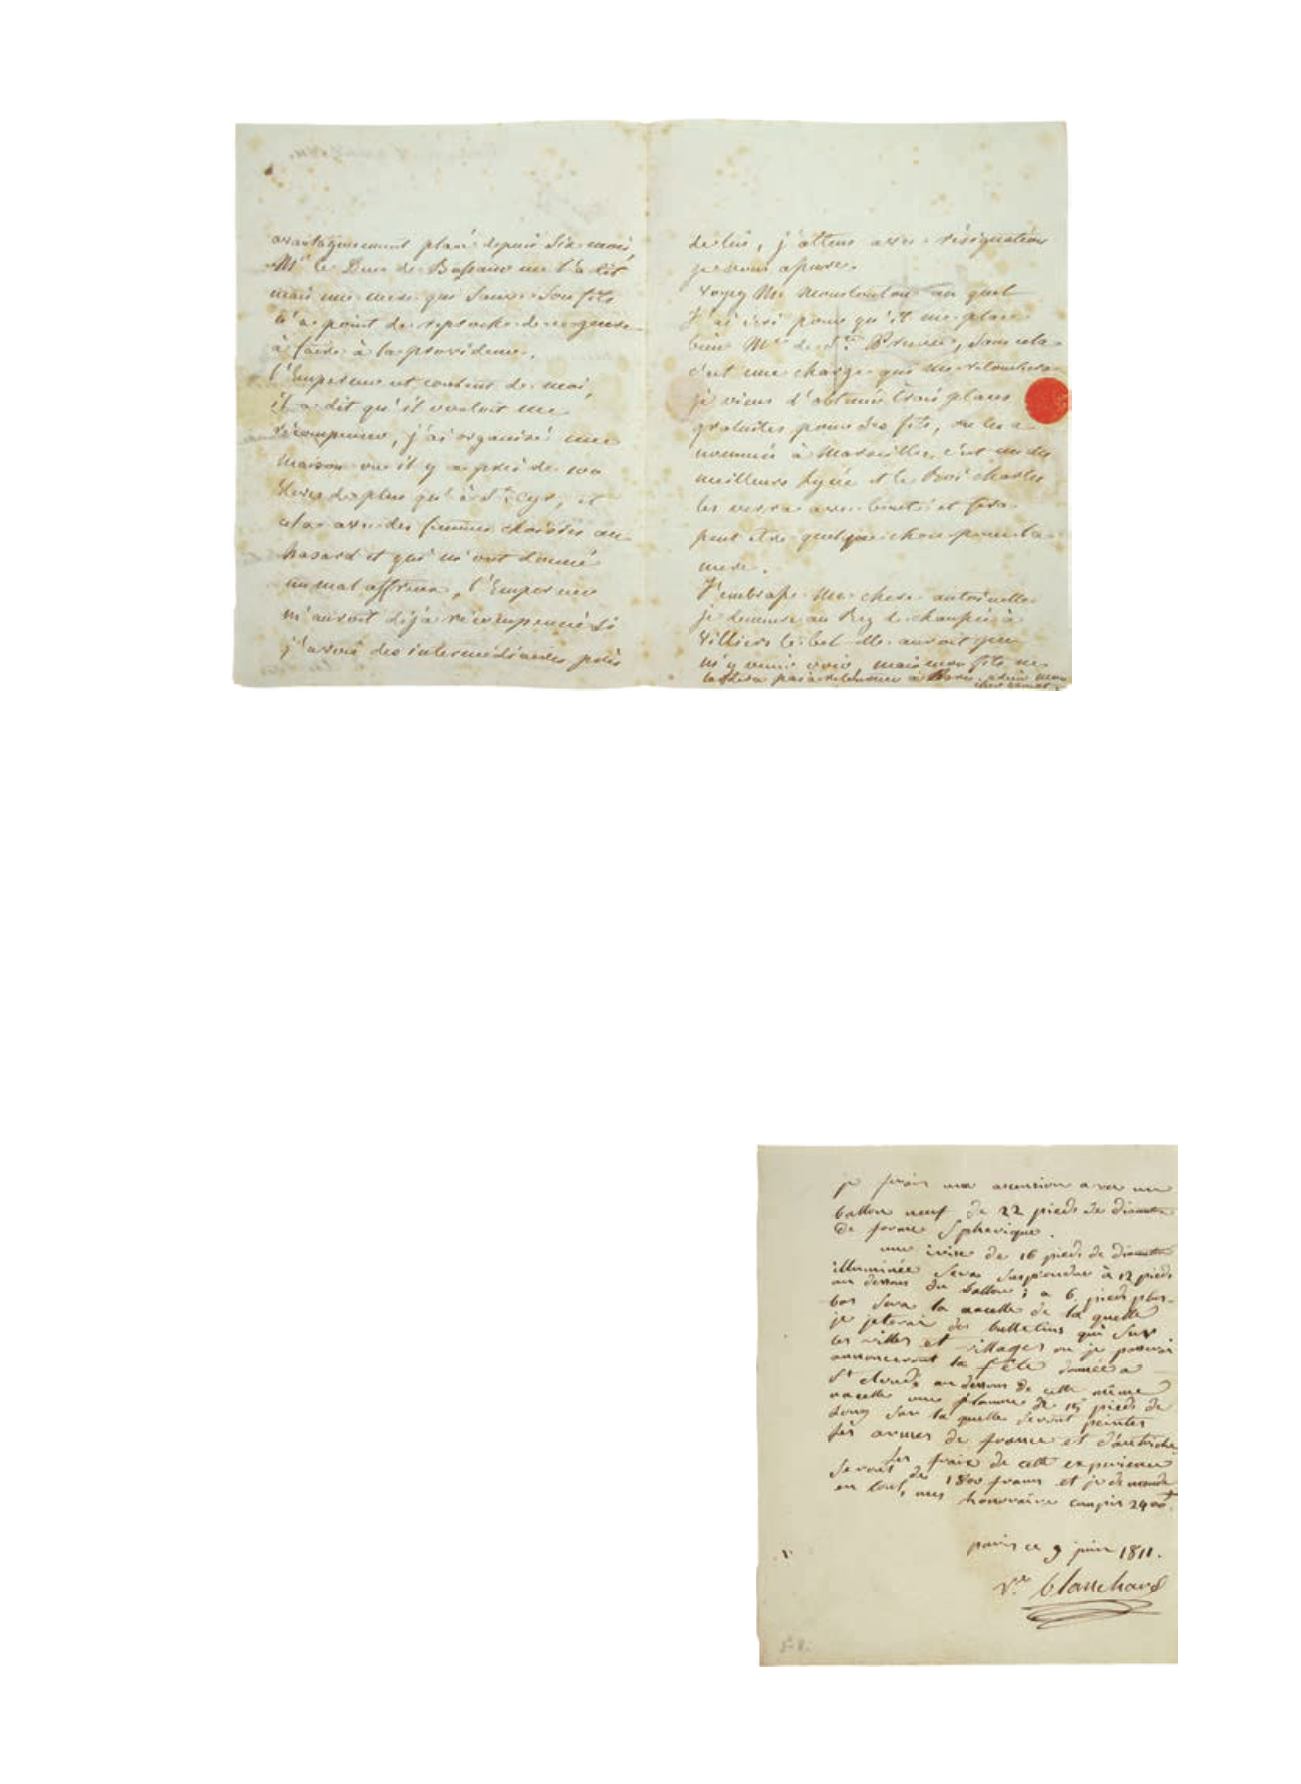 avantageusement placé depuis six mois,
Mr le Duc de Bassano me l'a dit
mais une mere qui sauve son fils
n'a point de reproche de ce genre
à faire à la providence.
l'Empereur est content de moi,
il a dit qu'il vouloit me
récompenser, j'ai organisé une
maison ou il y a près de 100
Eleves de plus qu'à St. Cyr, et
cela avec des femmes choisies au
hasard et qui m'ont donné
un mal affreux, l'Empereur
m'auroit déja récompensé si
j'avois des intermédiaires près
de lui, j'attens avec résignation
je vous assure.
Voyez Mr au quel
j'ai écri pour qu'il me place
bien Mr de St. sans cela
c'est une charge qui me retombera
je viens d'obtenir trois places
gratuites pour des fils, on les a
nommés à Marseille, c'est un des
meilleurs Lycée et le Roi Charles
les verra avec bonté et fera
peut etre quelque chose pour la
mere.
J'embrasse ma chere antoinette
je demeure au Rez de chaussée à
Villiers le bel elle auroit pu
m'y venir voir, mais mon fils me
pas à Paris. adieu mon
cher
je ferais une ascension avec un
ballon neuf de 22 pieds de diametre
de forme Spherique.
une de 16 pieds de diametre
illuminée sera suspendue à 12 pieds
au dessous du ballon; a 6 pieds plus
bas sera la nacelle de la quelle
je jeterai des bulletins qui sur
les villes et villages ou je passerai
annonceront la fête donnée a
St cloud, au dessous de cette même
nacelle une flamme de 15 pieds de
long sur la quelle seront peintes
les armes de france et d'autriche
Les frais de cette experience
seront de 1800 francs et je demande
en tout, mes honoraire compris 2400 f.
paris ce 9 juin 1811.
Ve. blanchard